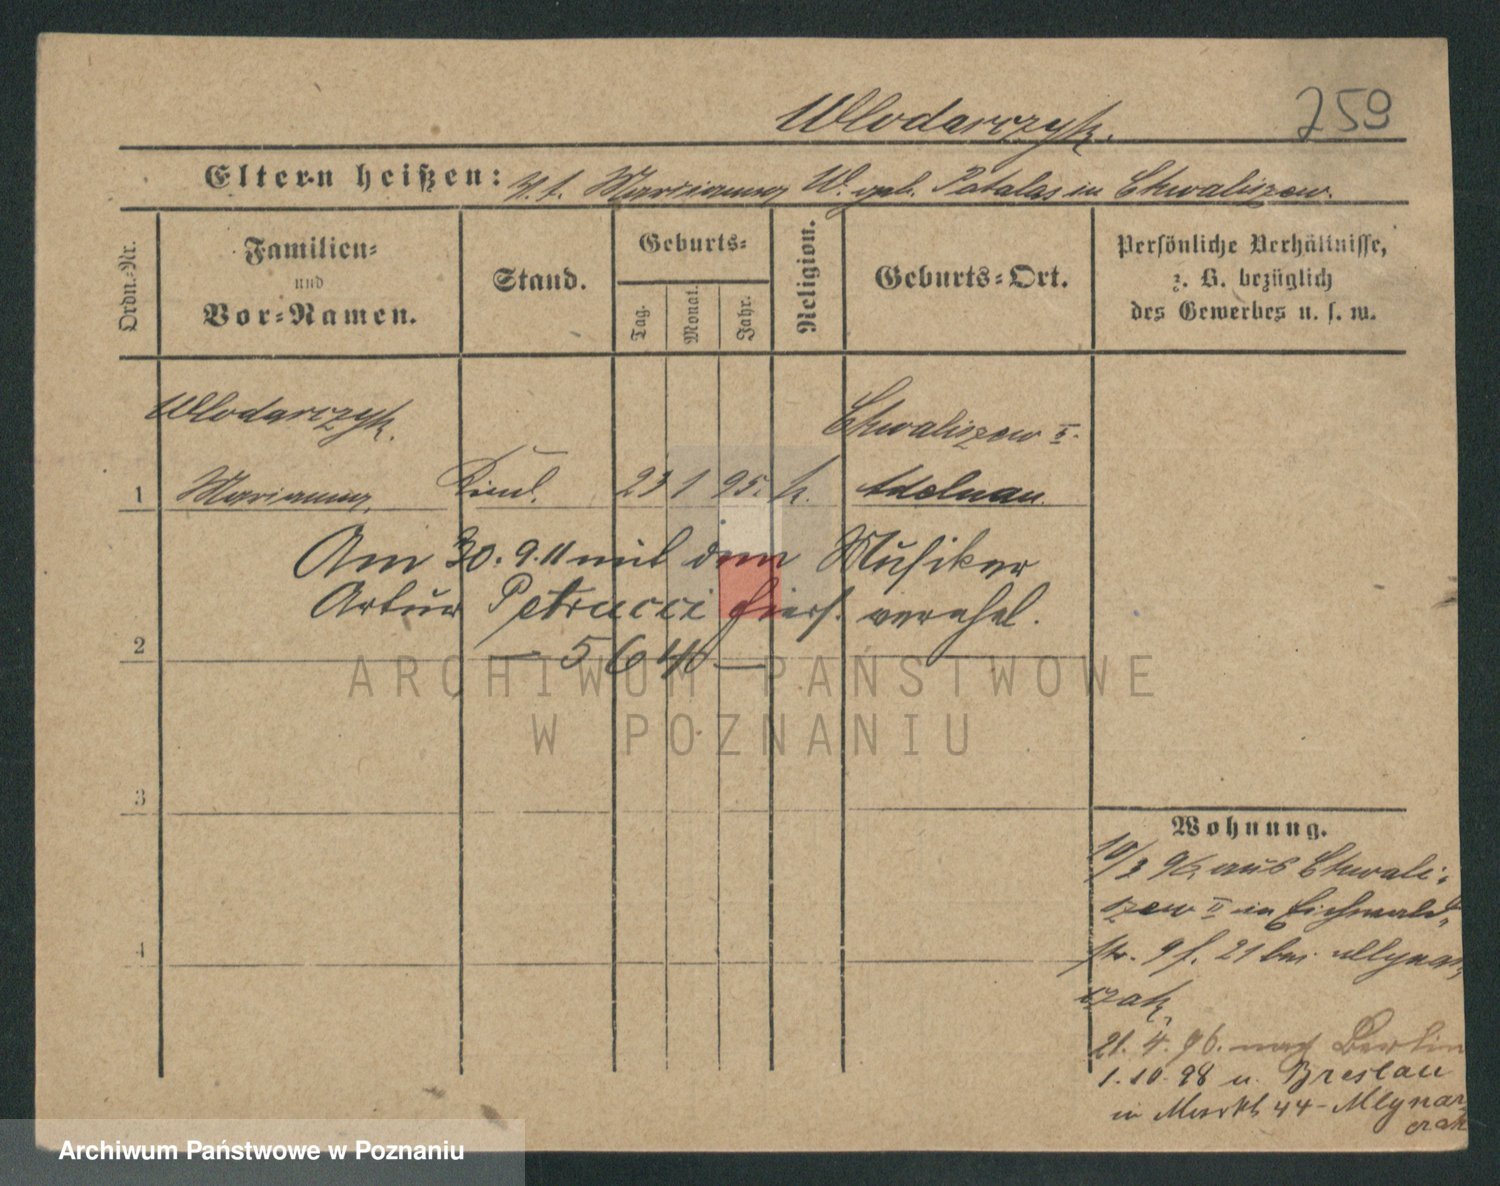 Wlodarczyk.
259
Eltern heißen: Marianna W. geb. Patalas in Chwaliszew.
Ordn.-Nr.
Familien-
und
Vor-Namen.
Stand.
Geburts-
Tag.
Monat.
Jahr.
Religion.
Geburts-Ort.
Persönliche Verhältnisse,
z. B. bezüglich
des Gewerbes u. s. w.
Wlodarczyk.
Chwaliszew II.
1 Marianna. Kind. 23 1 95. k. Adelnau.
Am 30.9.11 mit dem Musiker
Artur Petrucci hiers. verehel.
2
— 5640 —
3
Wohnung.
10/3 96 aus Chwali-
szew II in Eichwald-
str. 9 f. 21 bei Mlynar-
czak
4
21. 4. 96. nach Berlin
1.10.98 u. Breslau
in Markt 44 - Mlynar-
czak
ARCHIWUM PAŃSTWOWE
W POZNANIU
Archiwum Państwowe w Poznaniu